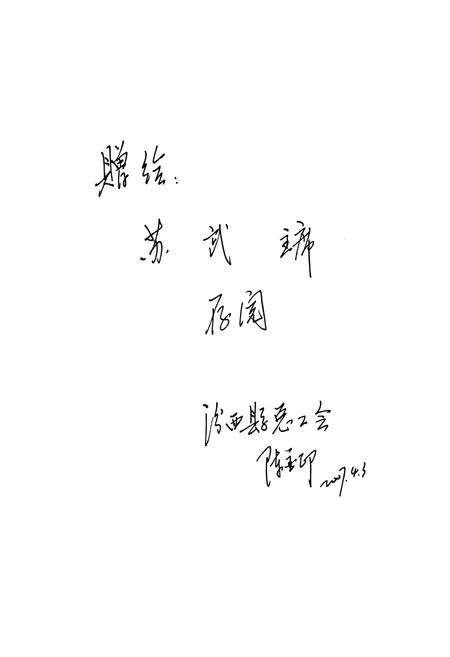 赠给：
苏武 主席
存阅
汾西縣总工会
陈玉印
2007.4.3